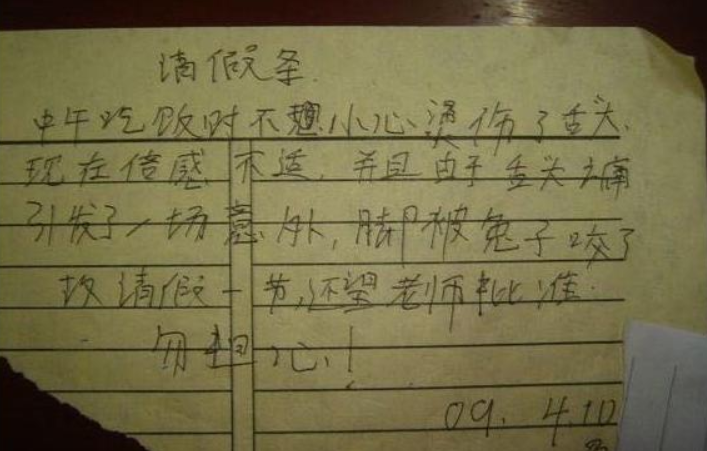 请假条.
中午吃饭时不想小心烫伤了舌头.
现在倍感不适，并且由于舌头之痛
引发了一场意外，脚被兔子咬了
故请假一节,还望老师批准.
勿担心!
09. 4.10